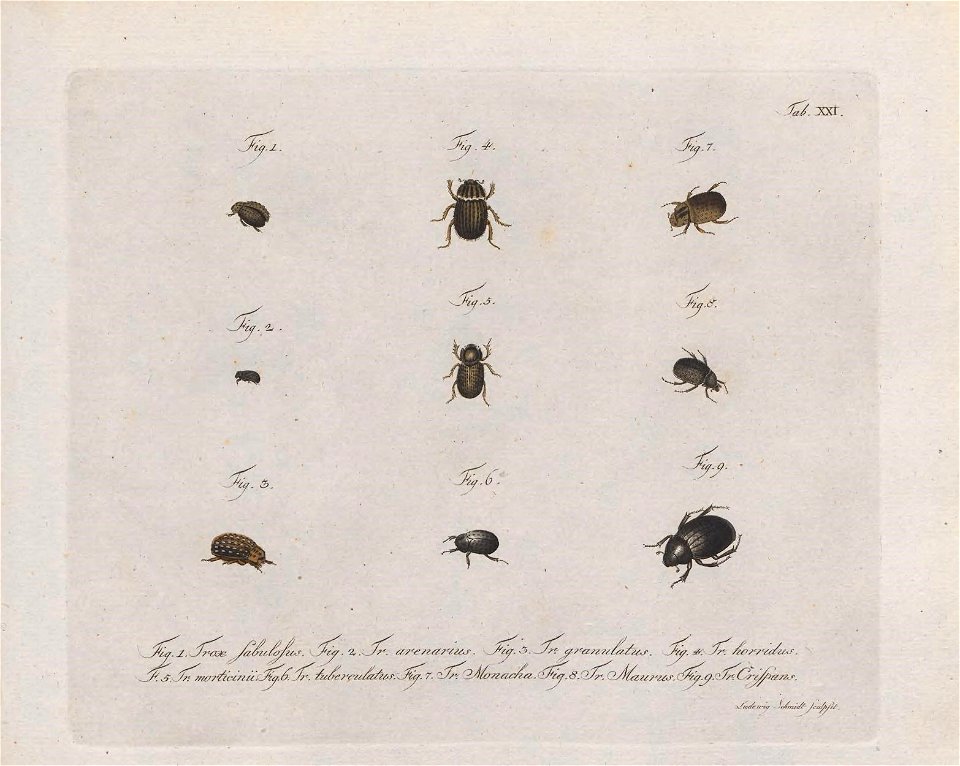 Tab. XXI.
Fig. 1.
Fig. 4.
Fig. 7.
Fig. 2.
Fig. 5.
Fig. 8.
Fig. 3.
Fig. 6.
Fig. 9.
Fig. 1. Trox ſabuloſus. Fig. 2. Tr. arenarius. Fig. 3. Tr. granulatus. Fig. 4. Tr. horridus.
F. 5. Tr. morticinii. Fig. 6. Tr. tuberculatus. Fig. 7. Tr. Monacha. Fig. 8. Tr. Maurus. Fig. 9. Tr. Criſpans.
Ludewig Schmidt ſculpſit.